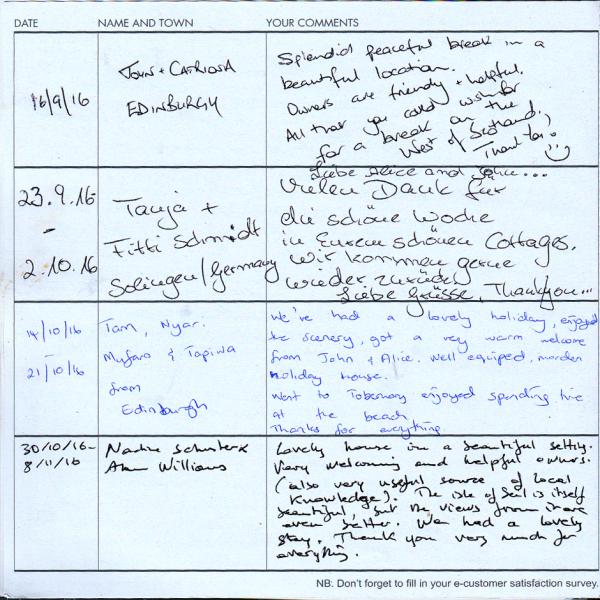 DATE NAME AND TOWN YOUR COMMENTS
16/9/16
John + Catriona
Edinburgh
Splendid peaceful break in a
beautiful location.
Owners are friendly + helpful.
All that you could wish for
for a break on the
West of Scotland.
Thank you.
23.9.16
-
2.10.16
Tanja +
Fitti Schmidt
Solingen/Germany
Liebe Alice and John...
Vielen Dank für
die schöne Woche
in Eurem schönen Cottages.
Wir kommen gerne
wieder zurück
Liebe Grüsse, Thankyou...
14/10/16
21/10/16
Tam, Nyar.
Mufaro & Tapiwa
from
Edinburgh
We've had a lovely holiday, enjoyed
the scenery, got a very warm welcome
from John & Alice. Well equiped, morden
holiday house.
Went to Tobermory enjoyed spending time
at the beach
Thanks for everything.
30/10/16-
8/11/16
Nadine Schuster &
Alan Williams
Lovely house in a beautiful setting.
Very welcoming and helpful owners.
(also very useful source of local
knowledge). The isle of Seil is itself
beautiful, but the views from here
even better. We had a lovely
stay. Thank you very much for
everything.
NB: Don't forget to fill in your e-customer satisfaction survey.